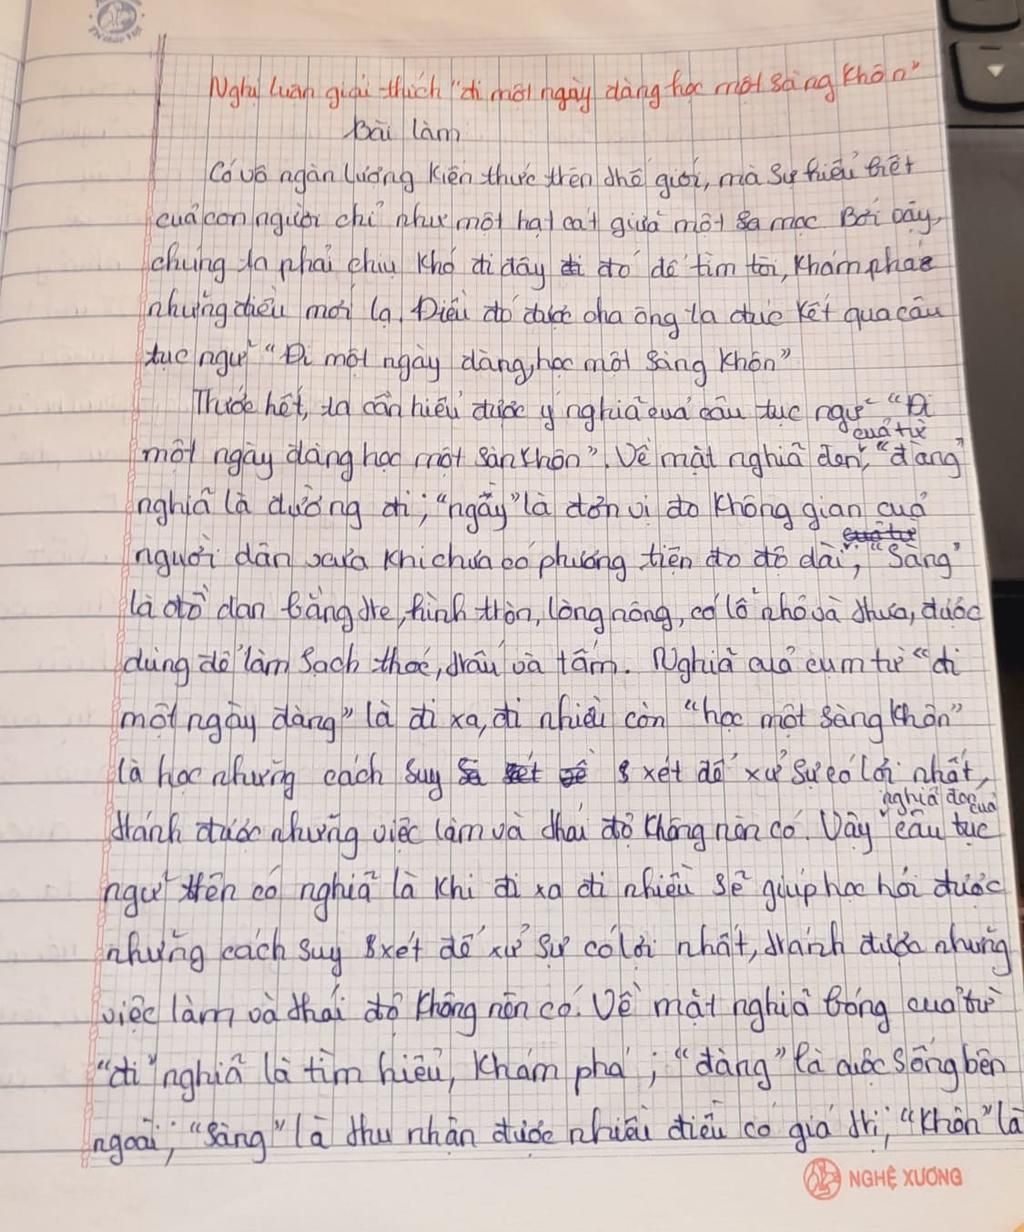 Nghị luận giải thích "đi một ngày đàng học một sàng khôn"
Bài làm
Có vô ngàn lượng kiến thức trên thế giới, mà sự hiểu biết
của con người chỉ như một hạt cát giữa một sa mạc Bởi vậy,
chúng ta phải chịu khó đi đây đi đó để tìm tòi, khám phá
những điều mới lạ. Điều đó được cha ông ta đúc kết qua câu
tục ngữ "Đi một ngày đàng, học một sàng khôn"
Trước hết, ta cần hiểu được ý nghĩa của câu tục ngữ "Đi
một ngày đàng học một sàn khôn". Về mặt nghĩa đen của từ, "đàng"
nghĩa là đường đi; "ngày" là đơn vị đo không gian của
người dân xưa khi chưa có phương tiện đo độ dài; "Sàng"
là đồ đan bằng tre, hình tròn, lòng nông, có lỗ nhỏ và thưa, được
dùng để làm sạch thóc, trấu và tấm. Nghĩa của cụm từ "đi
một ngày đàng" là đi xa, đi nhiều còn "học một sàng khôn"
là học những cách suy xét để xử sự có lợi nhất,
tránh được những việc làm và thái độ không nên có. Vậy nghĩa đen của câu tục
ngữ trên có nghĩa là khi đi xa đi nhiều sẽ giúp học hỏi được
những cách suy xét để xử sự có lợi nhất, tránh được những
việc làm và thái độ không nên có. Về mặt nghĩa bóng của từ
"đi" nghĩa là tìm hiểu, khám phá; "đàng" là cuộc sống bên
ngoài; "sàng" là thu nhận được nhiều điều có giá trị; "khôn" là
NGHỆ XƯƠNG